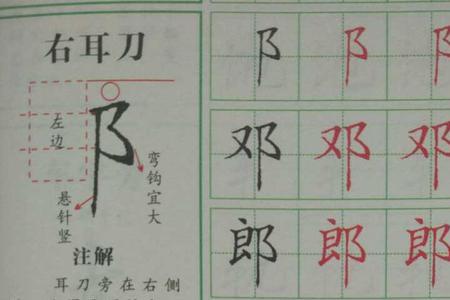 右耳刀
左边
阝
弯钩宜大
悬针竖
注解
耳刀旁在右侧
阝阝阝
邓邓邓
郎郎郎